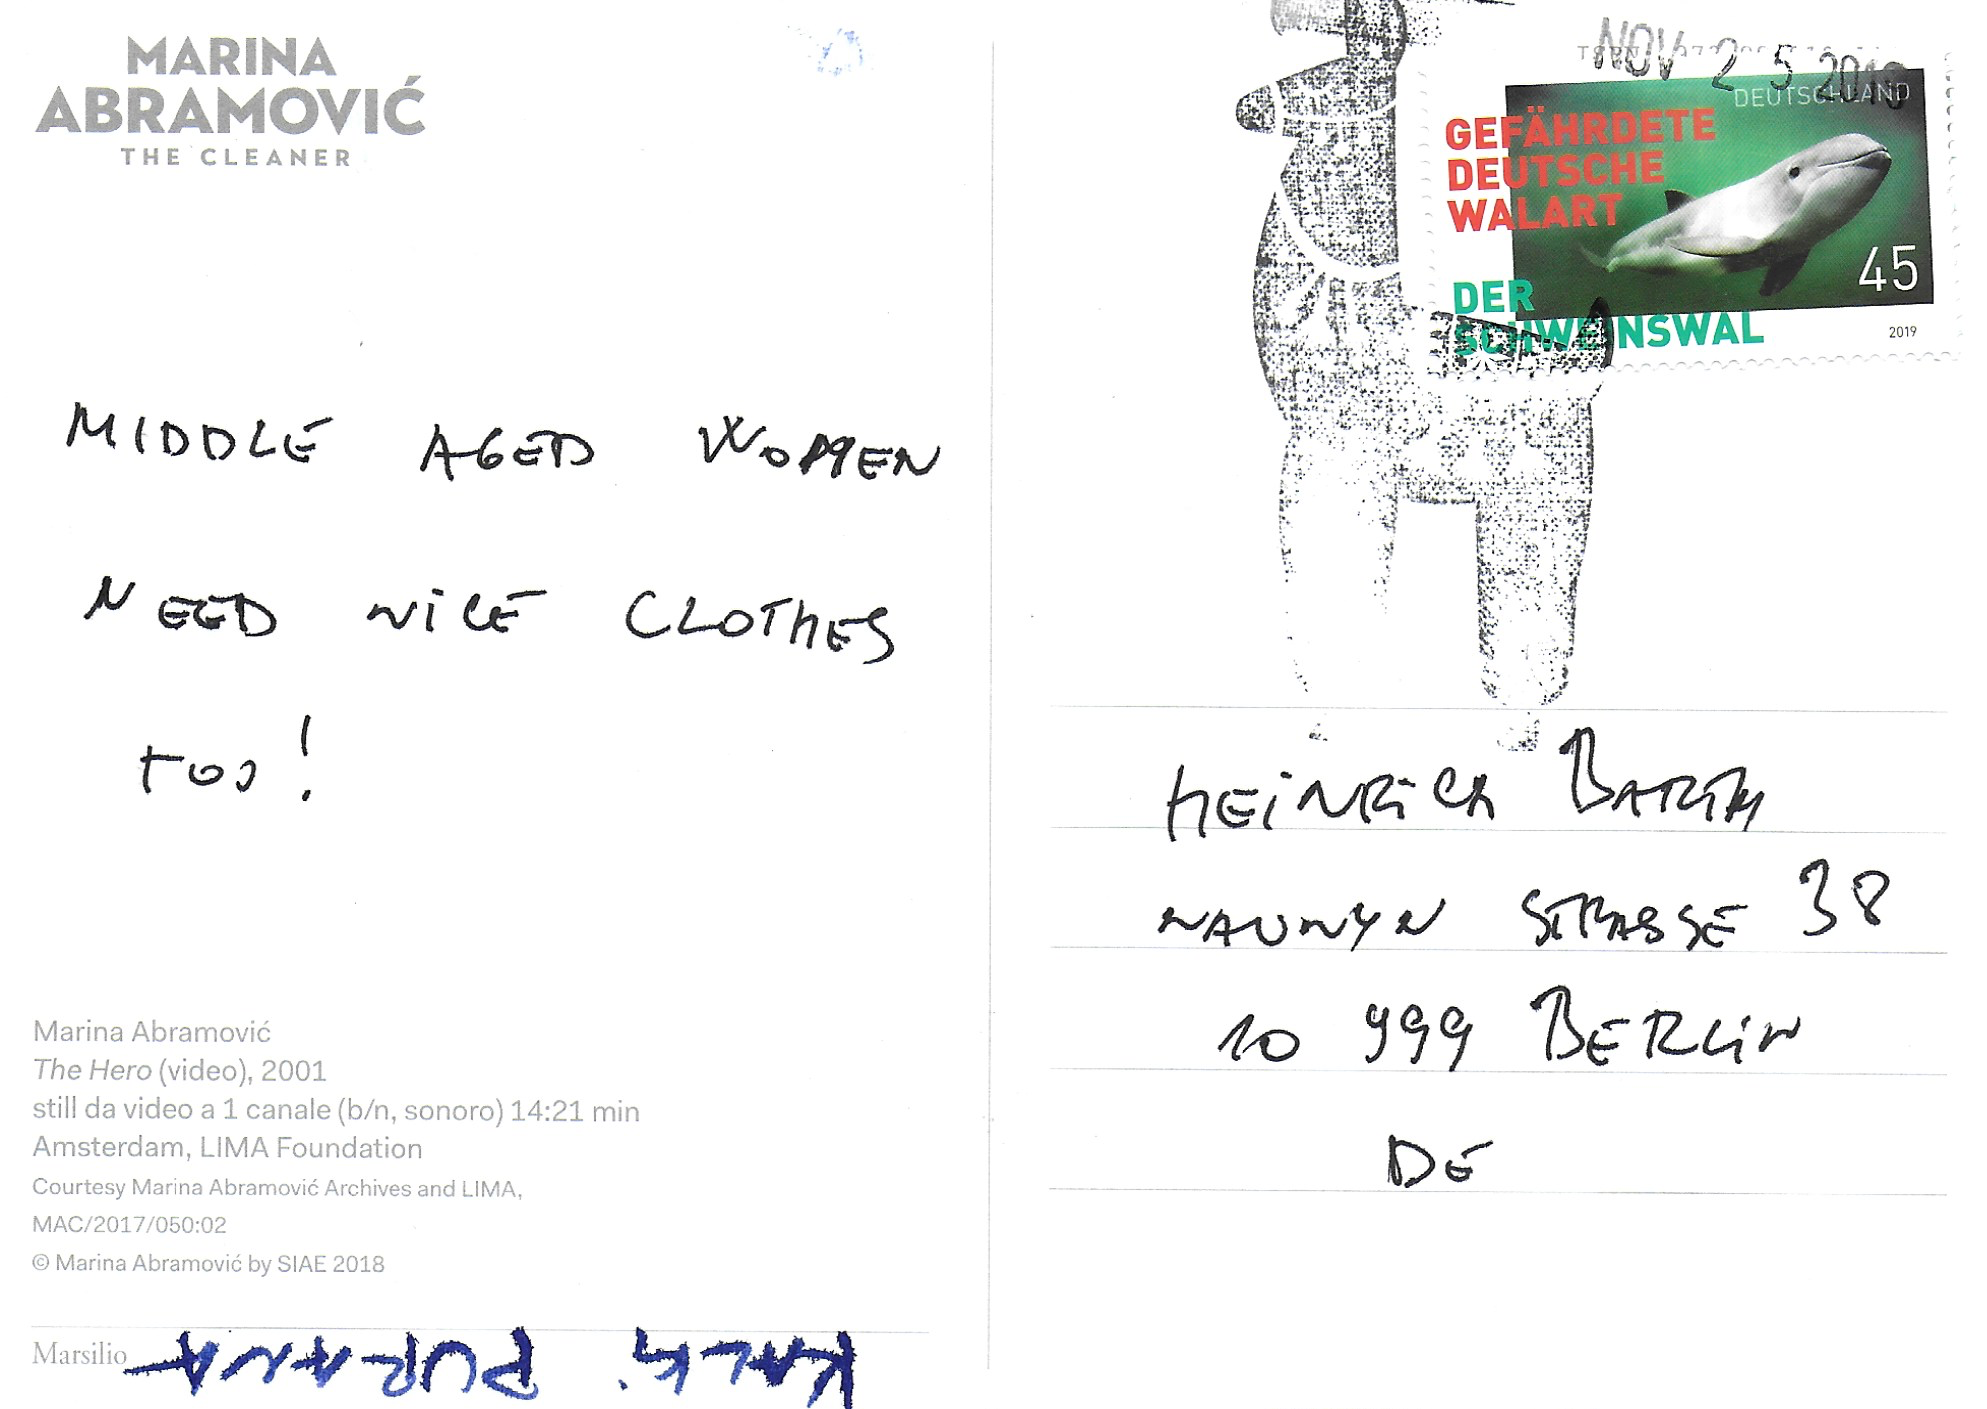 MARINA
ABRAMOVIĆ
THE CLEANER
MIDDLE AGED WOMEN
NEED NICE CLOTHES
TOO!
Marina Abramović
The Hero (video), 2001
still da video a 1 canale (b/n, sonoro) 14:21 min
Amsterdam, LIMA Foundation
Courtesy Marina Abramović Archives and LIMA,
MAC/2017/050:02
© Marina Abramović by SIAE 2018
Marsilio
NOV 25
DEUTSCHLAND
GEFÄHRDETE
DEUTSCHE
WALART
45
DER
SCHWEINSWAL
2019
HEINRICH BARTH
NAUNYN STRASSE 38
10 999 BERLIN
DE